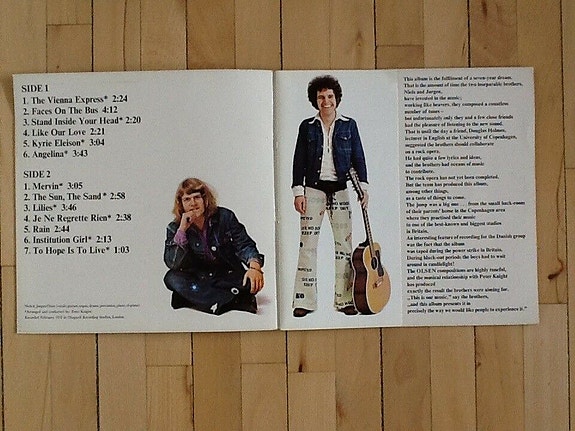 SIDE 1
1. The Vienna Express* 2:24
2. Faces On The Bus 4:12
3. Stand Inside Your Head* 2:20
4. Like Our Love 2:21
5. Kyrie Eleison* 3:04
6. Angelina* 3:43
SIDE 2
1. Mervin* 3:05
2. The Sun, The Sand * 2:58
3. Lilies* 3:46
4. Je Ne Regrette Rien* 2:38
5. Rain 2:44
6. Institution Girl* 2:13
7. To Hope Is To Live* 1:03
*Arranged and conducted by: Peter Knight
Recorded February 1972 at Chappell Recording Studios, London.
This album is the fulfilment of a seven-year dream.
That is the amount of time the two inseparable brothers,
Niels and Jørgen,
have invested in the music,
working like beavers, they composed a countless
number of tunes –
but unfortunately only they and a few close friends
had the pleasure of listening to the new sound.
That is until the day a friend, Douglas Holmes,
lecturer in English at the University of Copenhagen,
suggested the brothers should collaborate
on a rock opera.
He had quite a few lyrics and ideas,
and the brothers had oceans of music
to contribute.
The rock opera has not yet been completed.
But the team has produced this album,
among other things,
as a taste of things to come.
The jump was a big one ... from the small back-room
of their parents' home in the Copenhagen area
where they practised their music
to one of the best-known and biggest studios
in Britain.
An interesting feature of recording for the Danish group
was the fact that the album
was taped during the power strike in Britain.
During black-out periods the boys had to wait
around in candlelight!
The OLSEN compositions are highly tuneful,
and the musical relationship with Peter Knight
has produced
exactly the result the brothers were aiming for.
„This is our music,” say the brothers,
„and this album presents it in
precisely the way we would like people to experience it.”